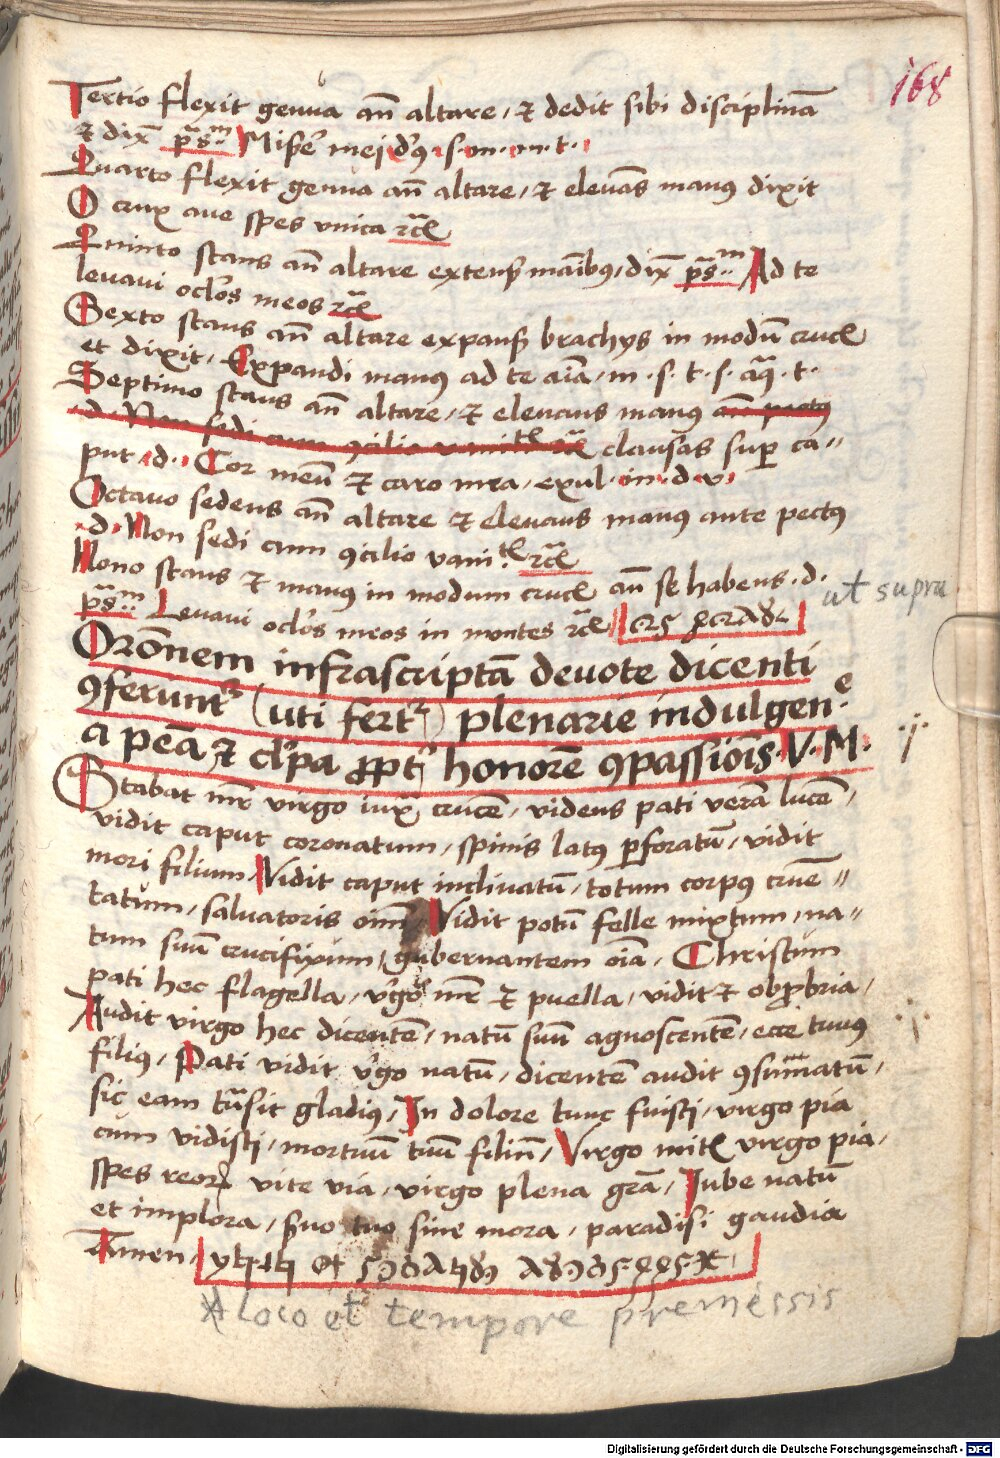 168
Tertio flexit genua an̄ altare, et dedit sibi disciplinā
et dix̄ p̄s̄m Miser̄ mei d's. s. m. m. t.
Quarto flexit genua an̄ altare, et elevās manus dixit
O crux ave spes unica rc̄
Quinto stans an̄ altare extens̄ manibus, dix̄ p̄s̄m Ad te
levavi oclos meos rc̄
Sexto stans an̄ altare expans̄ brachys in modū crucis
et dixit. Expandi manus ad te aīa, m. s. t. s. aq̄. t.
Septimo stans an̄ altare, et elevans manus an̄ pectus
d. Non sedi cum 9cilio vanit̄ rc̄ clausas sup ca//
put. d. Cor meū et caro mea, exul. in. d. v.
Octavo sedens an̄ altare et elevans manus ante pectus
.d. Non sedi cum 9cilio vanit̄. rc̄
Nono stans et manus in modum crucis an̄ se habens. d.
p̄s̄m Levavi oclos meos in montes rc̄
ut supra
Orōnem infrascriptā devote dicenti
9feruntr (uti fertr) plenarie indulgen.e
a pena et clpa ppt honorē 9passiōis. V. M.
Stabat mr̄ virgo iux̄ crucē, videns pati verā lucē,
vidit caput coronatum, spinis latus pforatū, vidit
mori filium. Vidit caput inclinatū, totum corpus cruē//
tatum, salvatoris oim̄ Vidit potū felle mixtum, na//
tum suū crucifixum, gubernantem oīa. Christum
pati hec flagella, v'go mr̄ et puella, vidit et obprobria,
Audit virgo hec dicentē, natū suū agnoscentē, ecce tuus
filius, Pati vidit v'go natū, dicentē audit 9sum̄atū,
sic eam tn̄sit gladius, In dolore tunc fuisti, virgo pia
cum vidisti, mortuū tuū filiū, Virgo mitis virgo pia,
spes reor̄ vite via, virgo plena grā, Iube natū
et implora, s̄vo tuo sine mora, paradisi gaudia
Amen.
loco et tempore premissis
Digitalisierung gefördert durch die Deutsche Forschungsgemeinschaft - DFG